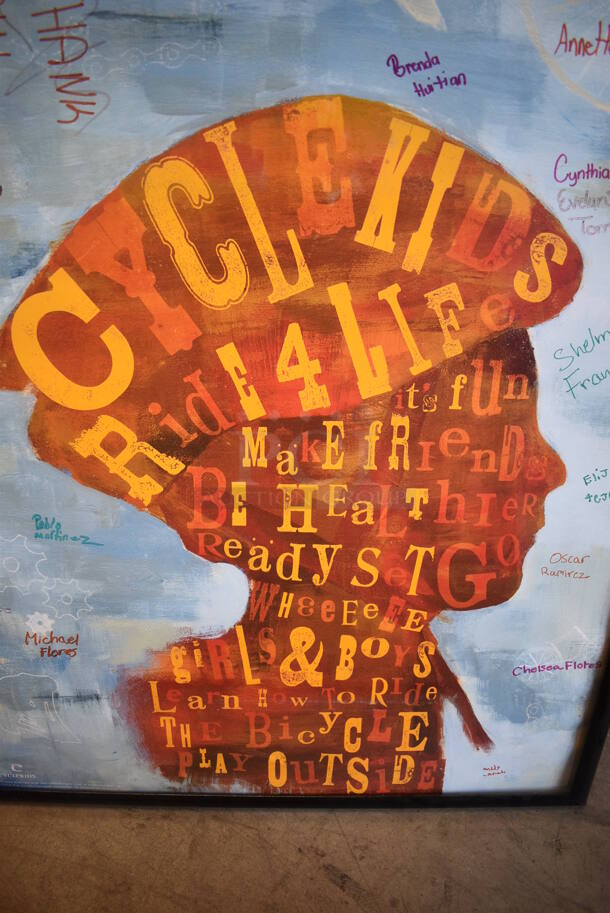 HANK
Brenda
Huitian
Annett
Cynthia
Evelyn
Torr
CYCLE KIDS
Ride 4 LIFe
it's fUn
MakE fRIenDs
BE HEaLThIeR
ReadySeT GO
WHeeEeEE
giRLS & BOYS
Learn How To Ride
THE BicyCLE
PLAY OuTSiDE
Shelm
Fran
Elij
Pablo
martinez
Oscar
Ramirez
Michael
Flores
Chelsea Flores
CYCLEKIDS